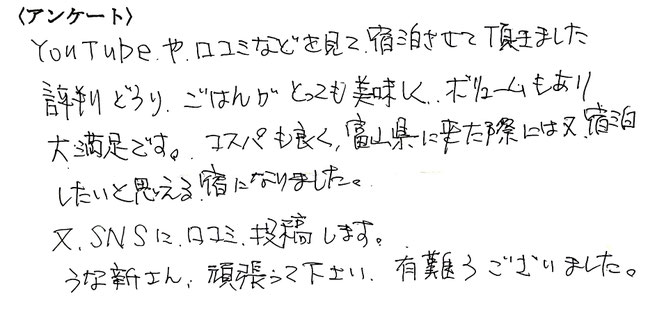 〈アンケート〉
YouTubeや、口コミなどを見て、宿泊させて頂きました
評判どうり、ごはんがとっても美味しく、ボリュームもあり
大満足です。コスパも良く、富山県に来た際には又、宿泊
したいと思える宿になりました。
又、SNSに、口コミ、投稿します。
うな新さん、頑張って下さい、有難うございました。